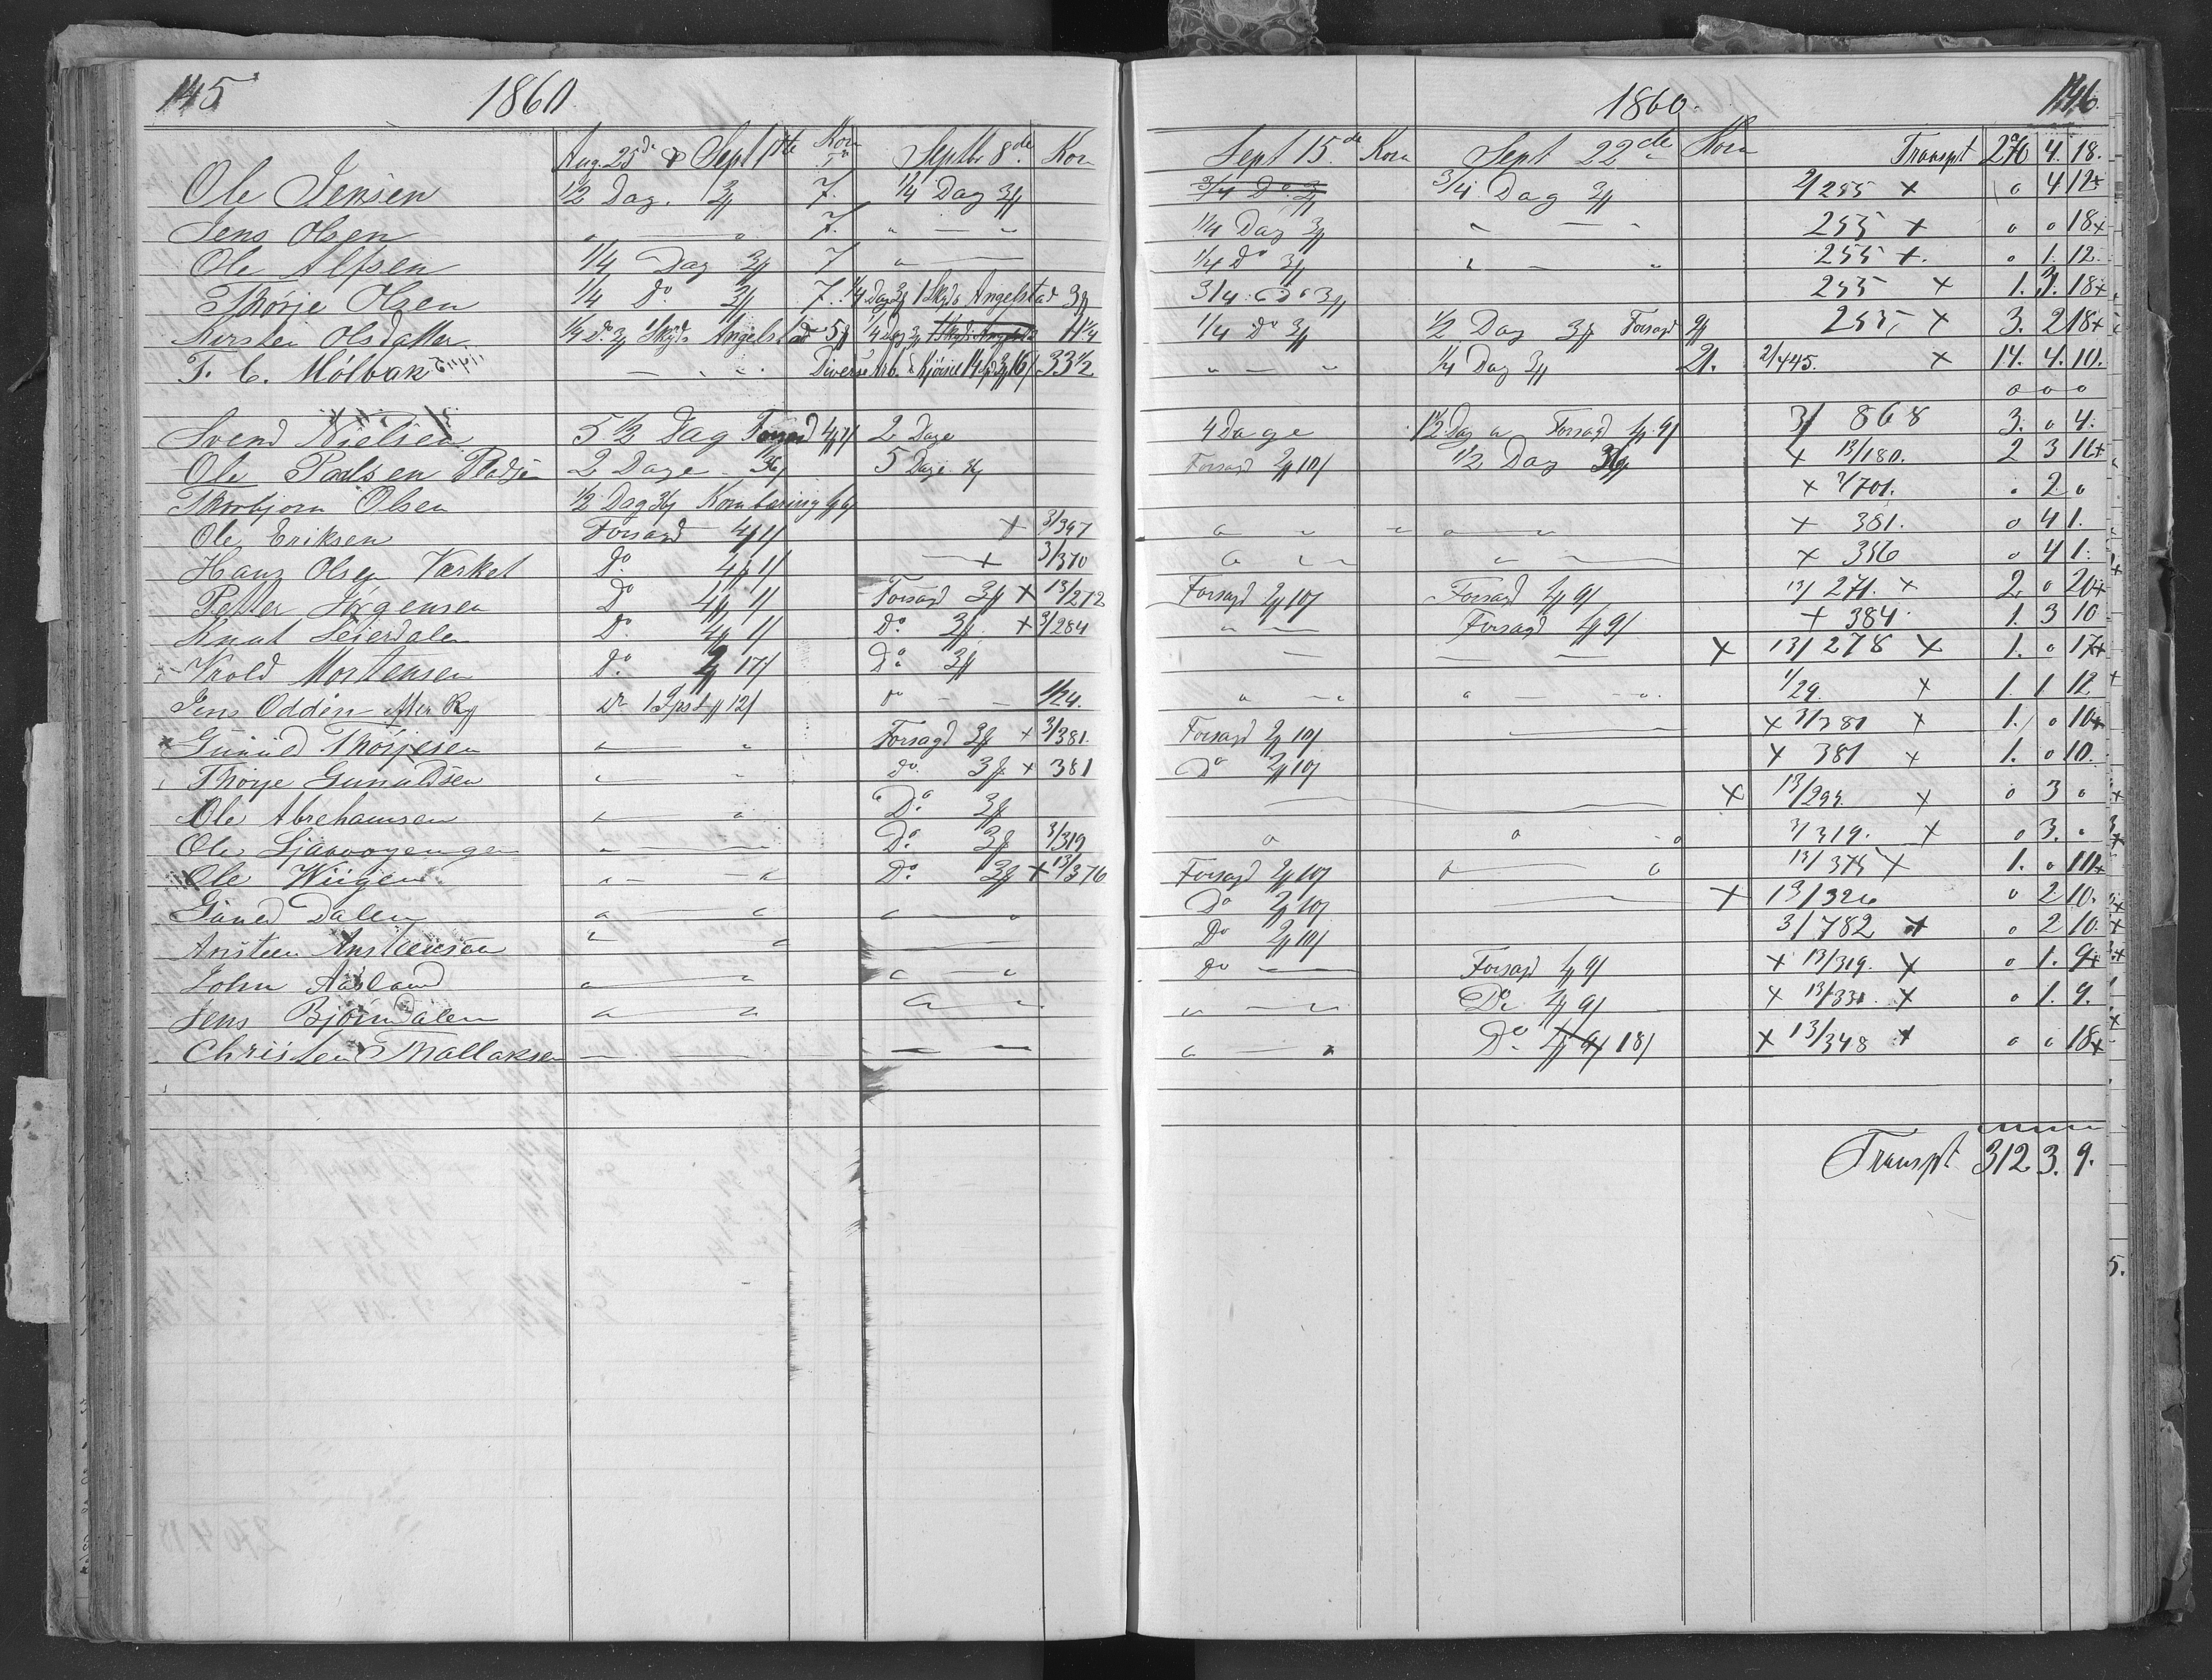 145 1860
Aug. 25de & Sept 1ste Korn Tr Septbr 8de Korn
Ole Jensen 1/2 Dag. 3 7. 1/4 Dag 3
Jens Olsen " — " 7. " — "
Ole Alfsen 1/4 Dag 3 7 " —
Thorje Olsen 1/4 Do 3 7. 1/4 Dag 3 1 Skyds Angelstad 3
Kirsten Olsdatter 1/4 Do 3 1 Skyds Angelstad 5 1/4 Dag 3 11 1/4
T. C. Mölbak — " " Diverse Arb. & Kjørsel 14 33 1/2
Svend Nielsen 5 1/2 Dag Forsagd 4 1/ 2 Dage
Ole Paulsen Pladsen 2 Dage 5 Dage
Thorbjorn Olsen 1/2 Dag Korn
Ole Eriksen Forsagd 4 1/ + 3/397
Hans Olsen Vasket Do 4 1/ — + 3/370
Petter Jörgensen Do 4 1/ Forsagd 3 + 13/272
Knut Seierdalen Do 4 1/ Do 3 + 3/284
Krold Mortensen Do 2 17/ Do 3
Jens Odden Do 1 12/ " - - 1/24.
Gunuld Thorjesen " " Forsagd 3 + 3/381.
Thorje Gunuldsen " " do 3 + 381
Ole Abrehamsen " " " Do 3
Ole " — Do 3 3/319
Ole Wiigen " — " Do 3 + 13/376
Guned Dalen " " " — "
Ansteen Anstensen " " —
John Aasland " " " — "
Jens Bjørndalen " " "
Christen Tvallaksen — . — — —
1860. 146.
Sept 15de Korn Sept 22de Korn Transpt 270 4. 18.
3/4 Do 3 3/4 Dag 3 2/255 + 0 4 12+
1/4 Dag 3 " — " 255 + 0 0 18+
1/4 Do 3 " — " 255 +. 0 1. 12.
3/4 Do 3 255 + 1. 3. 18+
1/4 Do 3 1/2 Dag 3 Forsagd 9/ 255, + 3. 2 18+
" — " 1/4 Dag 3 21. 2/445. + 14. 4. 10.
0 0 0
4 Dage 1 1/2 Dag a Forsagd 1 9/ 3/ 868 3. 0 4.
Forsagd 2 10/ 1/2 Dag + 13/180. 2 3 16+
+ 3/701. . 2. 0
" " " " " + 381. 0 4 1.
" " " — + 356 0 4 1.
Forsagd 2 10/ Forsagd 1 9/ 13/ 271. + 2. 0 20+
" — Forsagd 1 9/ + 384. 1. 3 10
— — — + 13/278 + 1. 0 17+
" — " " — — ". 1/29. + 1. 1 12
Forsagd 2 10/ — + 3/381 + 1. 0 10+
Do 2 10/ + 381 + 1. 0 10.
— + 13/294. + 0 3 0
" " " 3/319. + 0 3. 0
Forsagd 2 10/ " — " 13/375 + 1. 0 10+
Do 2 10/ — + 13/326 0 2 10.
Do 2 10/ 3/782 + 0 2 10.
do — — Forsagd 1 9/ + 13/319. + 0 1. 9+
" — " Do 1 9/ + 13/331. + 0 1. 9.
" — " Do 18/ + 13/348 + 0 0 18+
Transpt 312 3. 9.